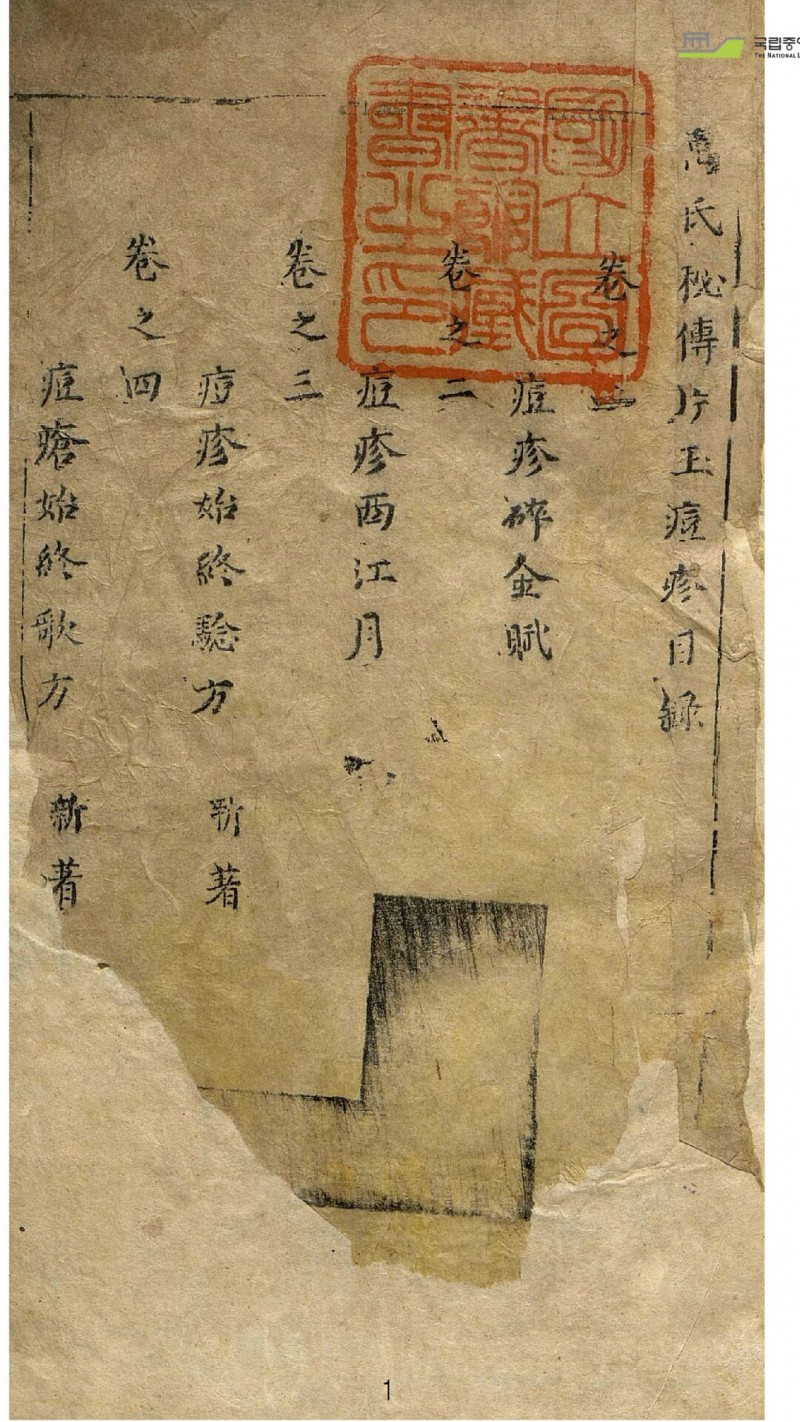 萬氏秘傳片玉痘疹目錄
卷之一
痘疹碎金賦
卷之二
痘疹西江月
卷之三
痘疹始終驗方 新著
卷之四
痘瘡始終歌方 新著
國立圖
書館藏
書之印
국립중앙
THE NATIONAL L
1